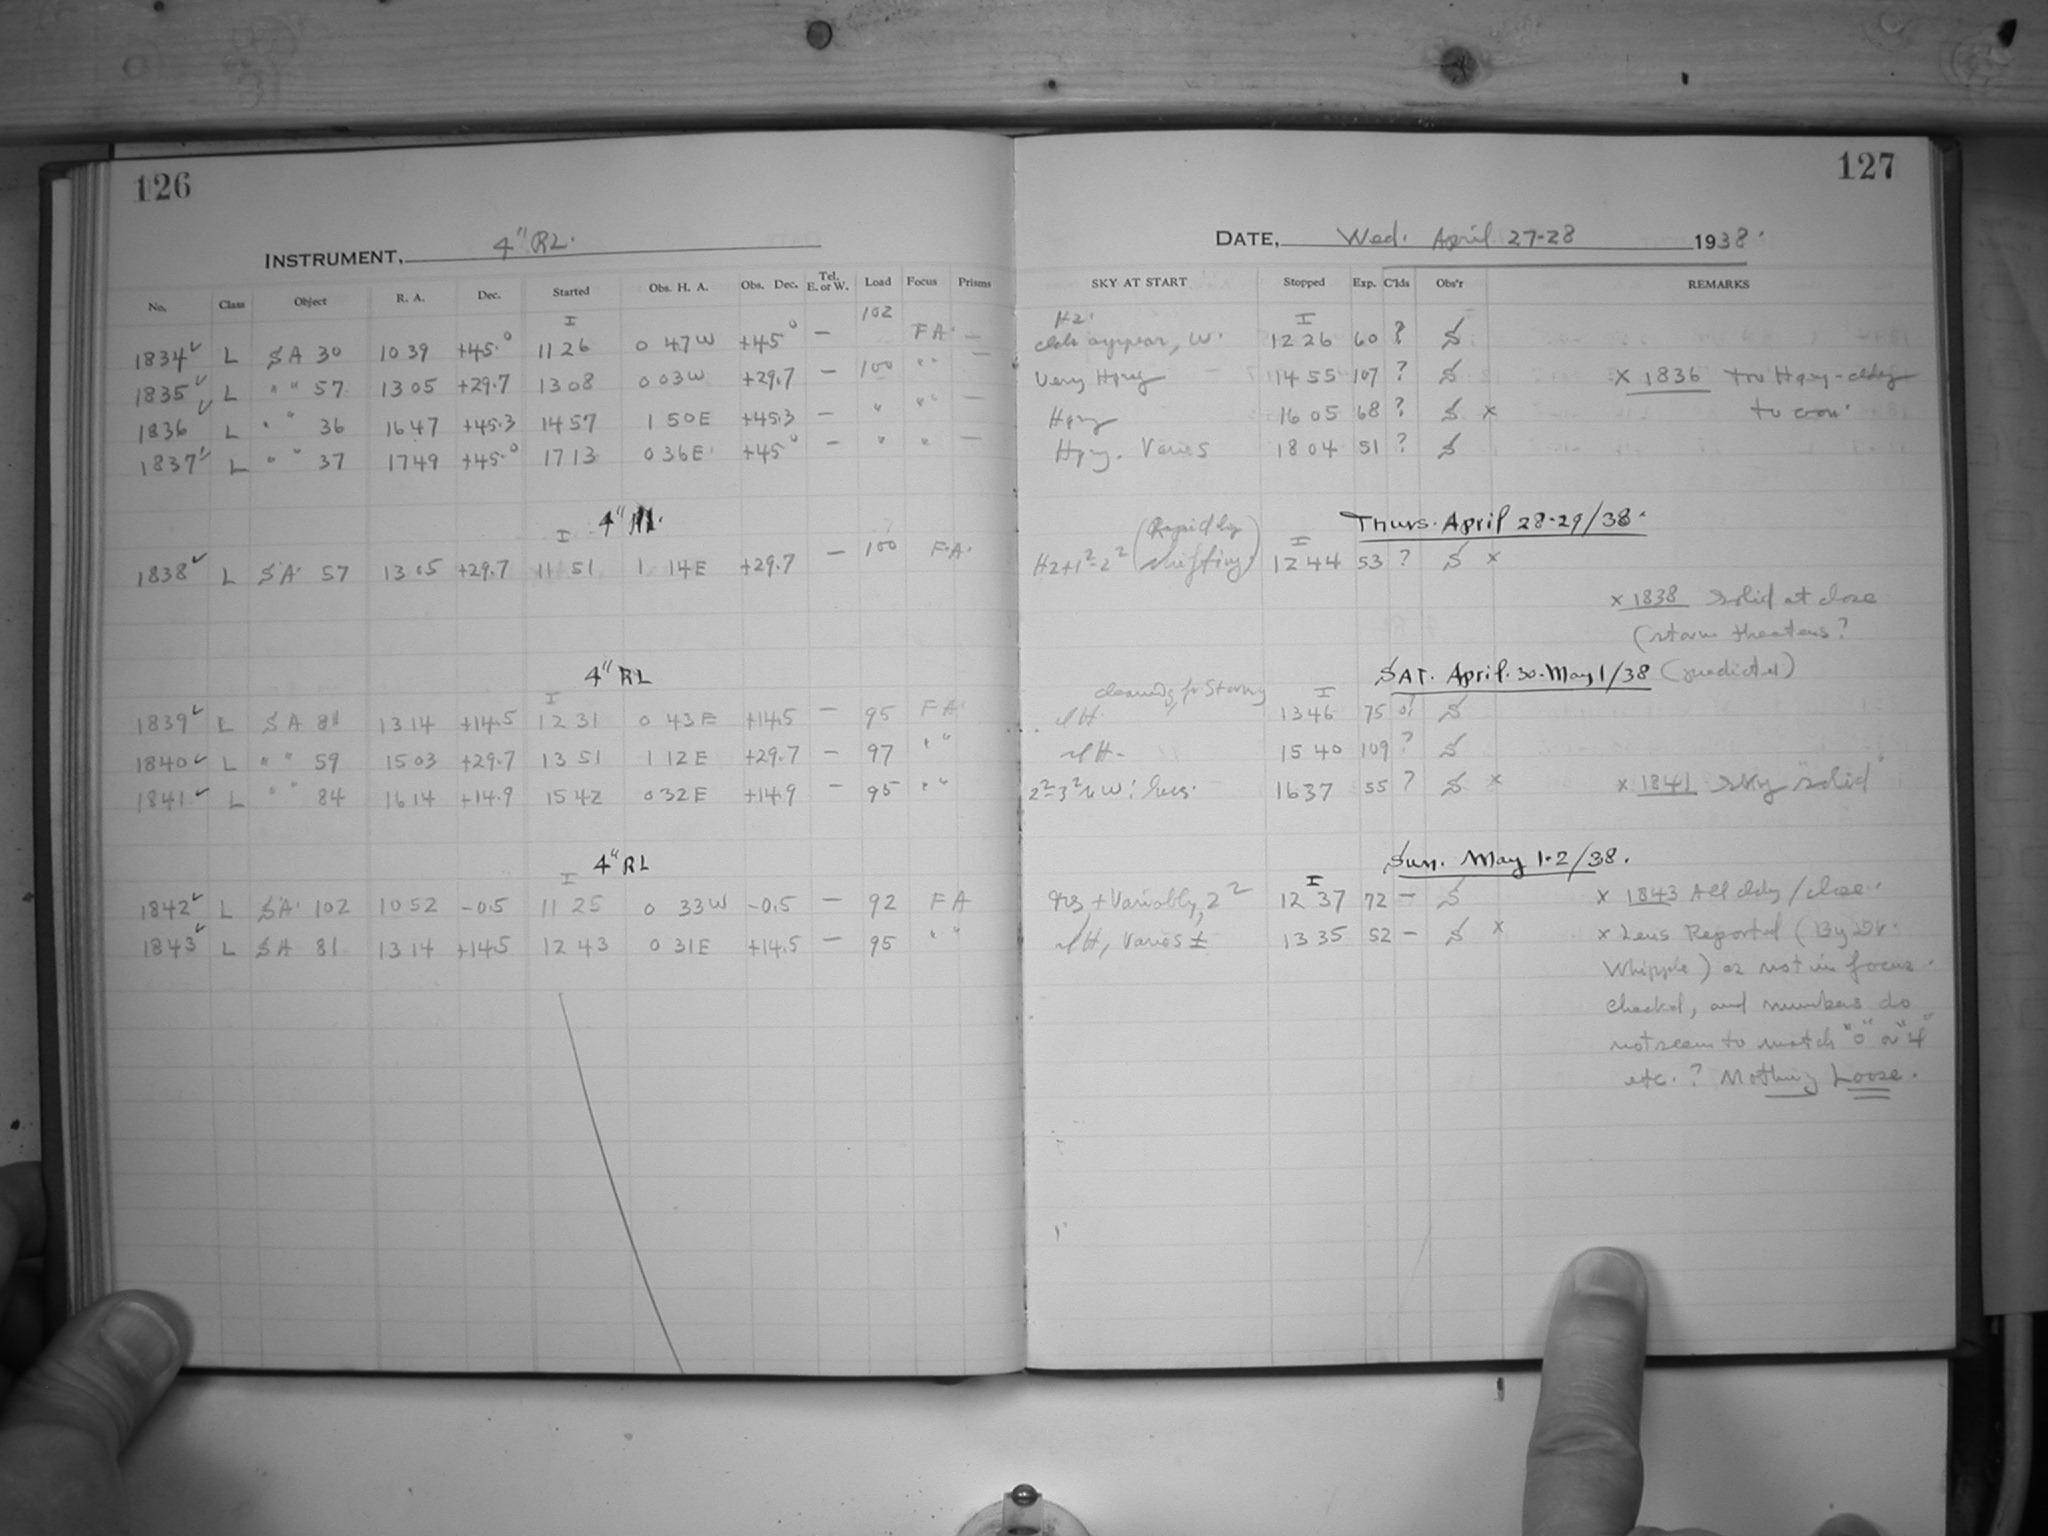 126
INSTRUMENT, 4" RL.
No. Class Object R. A. Dec. Started Obs. H. A. Obs. Dec. Tel. E. or W. Load Focus Prisms
I 102
1834 ✓ L SA 30 10 39 +45.0 11 26 0 47 W +45 0 — FA. —
1835 ✓ L " " 57 13 05 +29.7 13 08 0 03 W +29.7 — 100 " " —
1836 ✓ L " " 36 16 47 +45.3 14 57 1 50 E +45.3 — " " " —
1837 ✓ L " " 37 17 49 +45.0 17 13 0 36 E +45 0 — " " —
4" RL.
I
1838 ✓ L SA 57 13 05 +29.7 11 51 1 14 E +29.7 — 100 F.A.
4" RL
I
1839 ✓ L SA 81 13 14 +14.5 12 31 0 43 E +14.5 — 95 FA.
1840 ✓ L " " 59 15 03 +29.7 13 51 1 12 E +29.7 — 97 " "
1841 ✓ L " " 84 16 14 +14.9 15 42 0 32 E +14.9 — 95 " "
4" RL
I
1842 ✓ L SA 102 10 52 -0.5 11 25 0 33 W -0.5 — 92 FA
1843 ✓ L SA 81 13 14 +14.5 12 43 0 31 E +14.5 — 95 " "
127
DATE, Wed. April 27-28 1938.
SKY AT START Stopped Exp. C'lds Obs'r REMARKS
Hz. I
appear, W. 12 26 60 ? S
Very Hazy 14 55 107 ? S x 1836 Hazy-cldy
Hazy 16 05 68 ? S x to con.
Hazy. Varies 18 04 51 ? S
Thurs. April 28-29/38.
(Rapidly I
Hz+1²-2² shifting) 12 44 53 ? S x
x 1838 Solid at close
(storm threatens?
SAT. April 30-May 1/38 (predicted)
I
13 46 75 0? S
15 40 109 ? S
2²-3² W: 16 37 55 ? S x x 1841 Sky "solid"
Sun. May 1-2/38.
I
+ Variably, 2² 12 37 72 — S x 1843 All cldy/close.
Varies ± 13 35 52 — S x x Lens Reported (By Dr.
Whipple) as not in focus.
checked, and numbers do
not seem to match "0" or "4"
etc.? Nothing Loose.